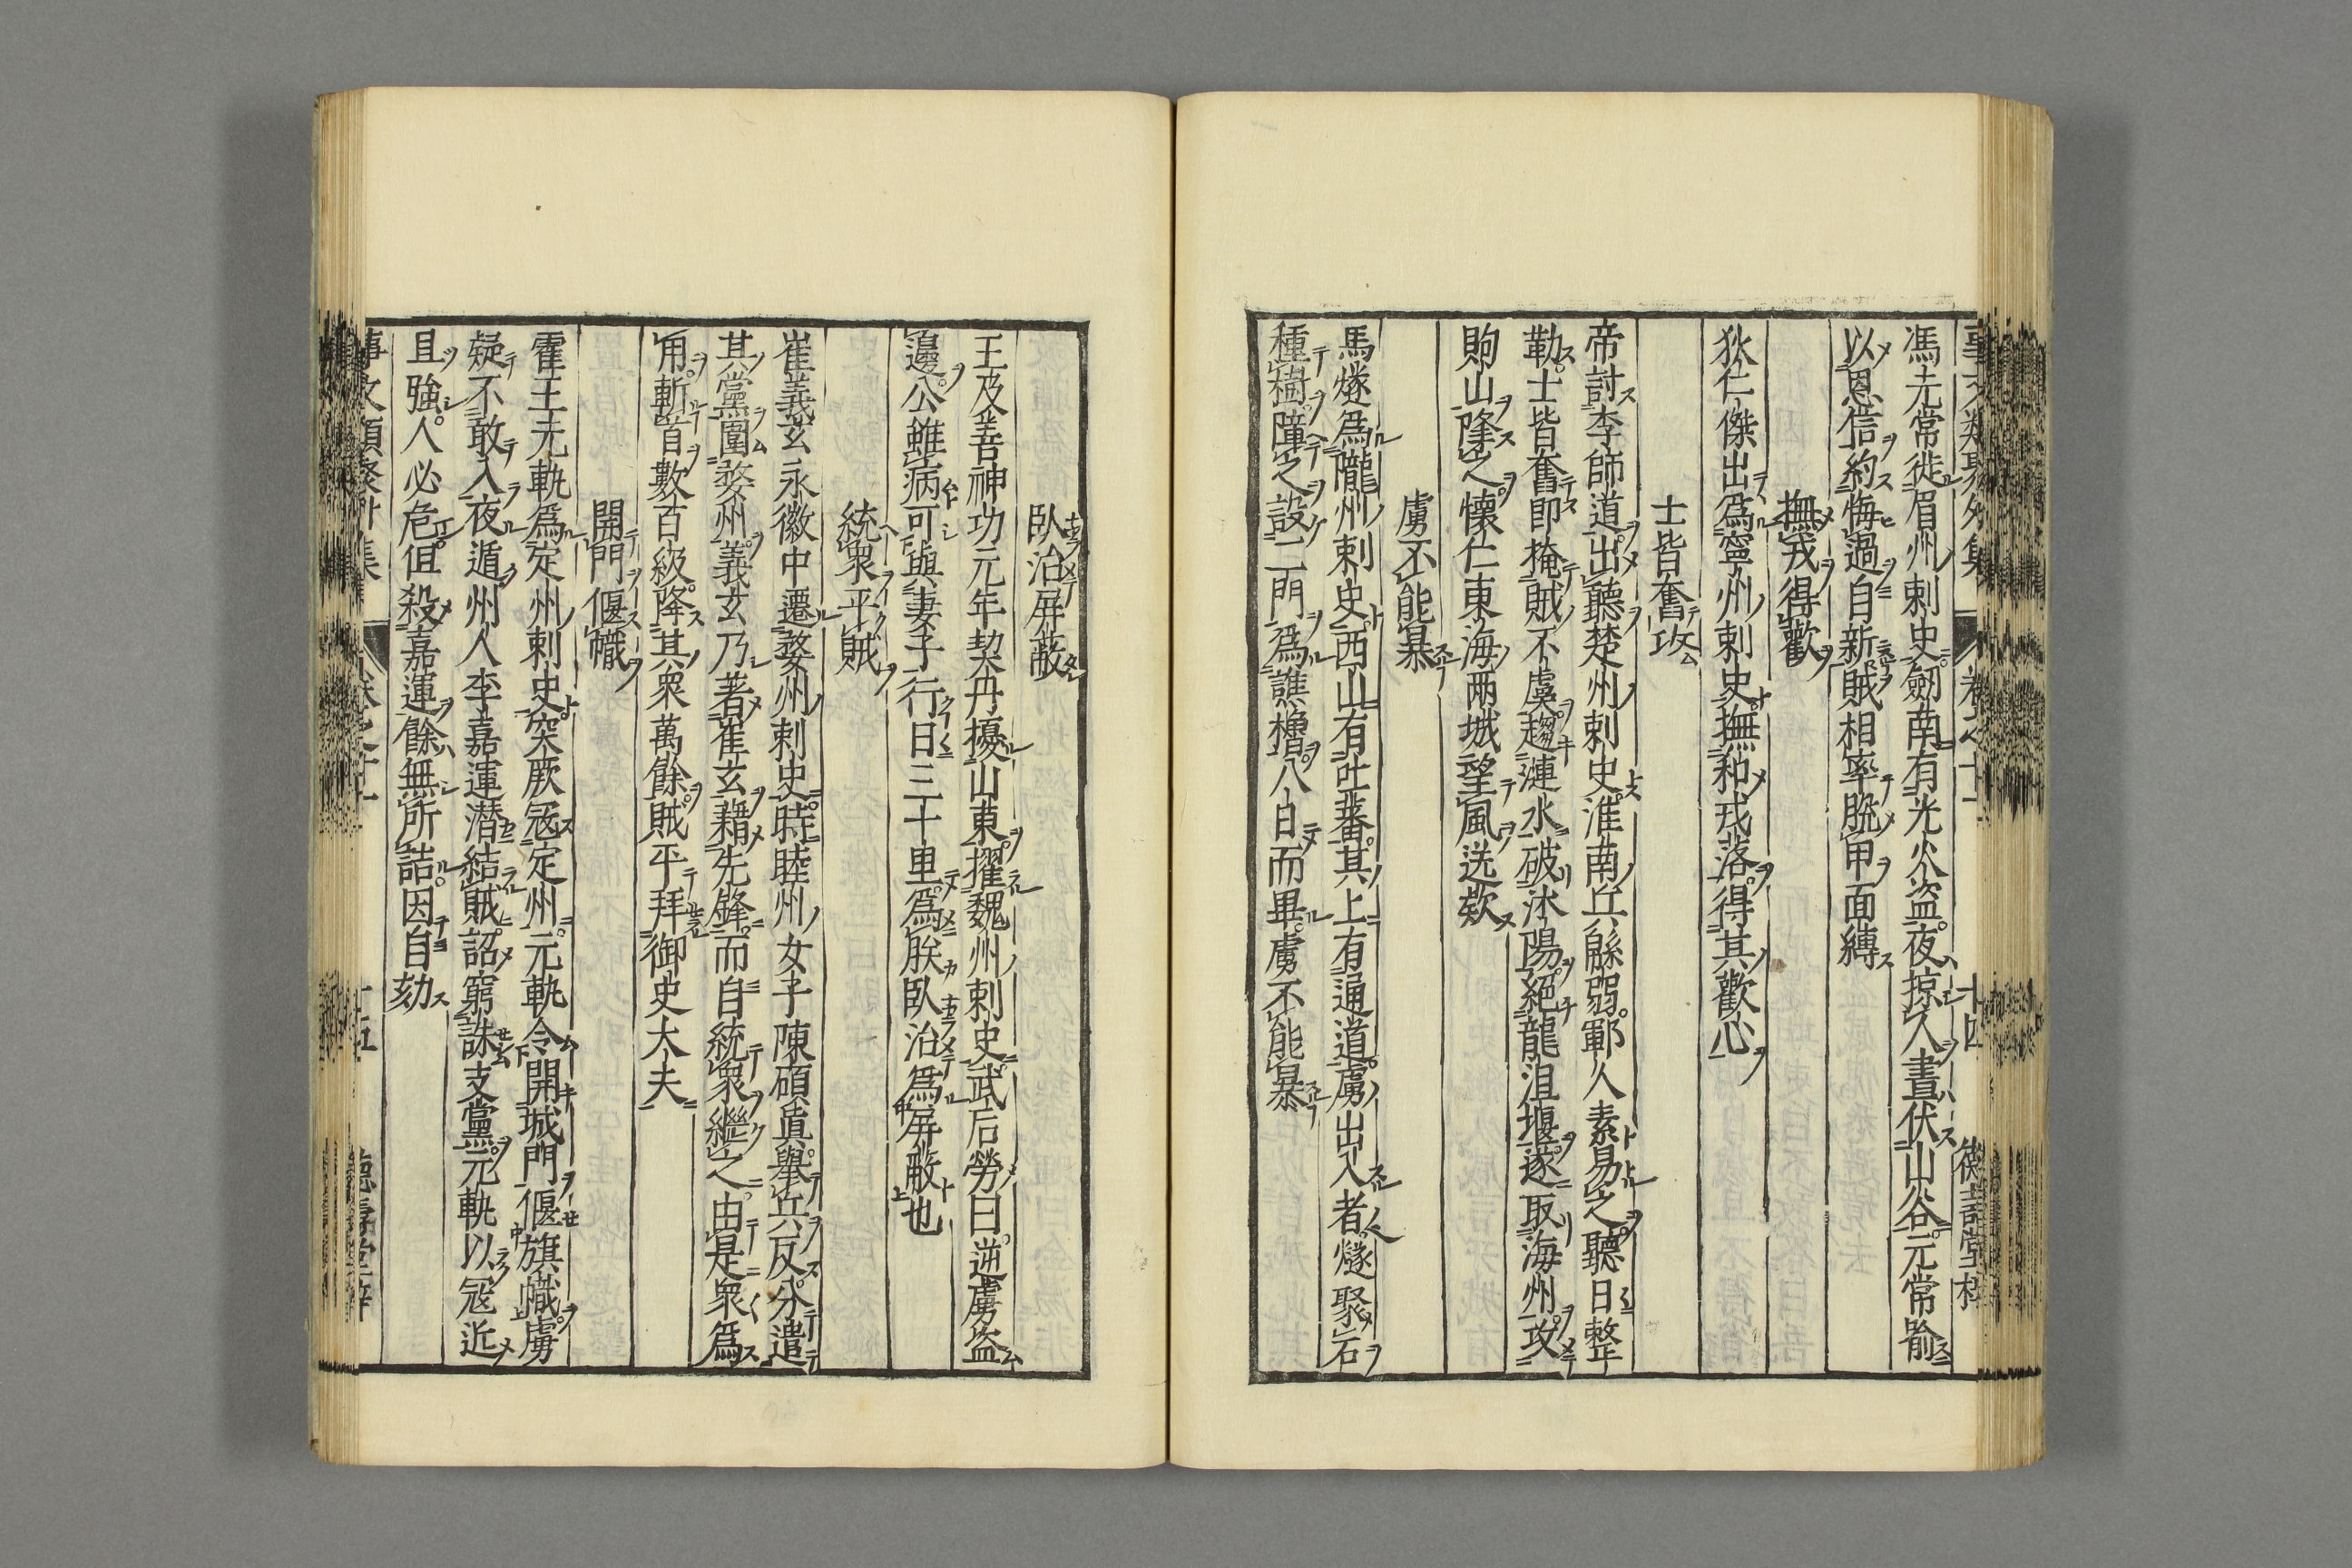 馮元常徙眉州刺史劒南有光火盗夜掠人晝伏山谷元常喻
以恩信約悔過自新賊相率脫甲面縛
撫戎得歡
狄仁傑出爲寧州刺史撫和戎落得其歡心
士皆奮攻
帝討李師道出聽楚州刺史淮南兵緜弱鄆人素易之聽日整
勒士皆奮即掩賊不虞趨漣水破沭陽絕龍沮堰遂取海州攻
朐山降之懷仁東海兩城望風送欵
虜不能暴
馬燧爲隴州刺史西山有吐蕃其上有通道虜出入者燧聚石
種樹障之設二門爲譙櫓八日而畢虜不能暴
臥治屏蔽
王及善神功元年契丹擾山東擢魏州刺史武后勞曰逆虜盗
邊公雖病可與妻子行日三十里爲朕臥治爲屏蔽也
統衆平賊
崔義玄永徽中遷婺州刺史時睦州女子陳碩眞舉兵反分遣
其黨圍婺州義玄乃著崔玄籍先鋒而自統衆繼之由是衆爲
用斬首數百級降其衆萬餘賊平拜御史大夫
開門偃幟
霍王元軌爲定州刺史突厥冦定州元軌令開城門偃旗幟虜
疑不敢入夜遁州人李嘉運潜結賊詔窮誅支黨元軌以冦近
且強人必危但殺嘉運餘無所詰因自劾